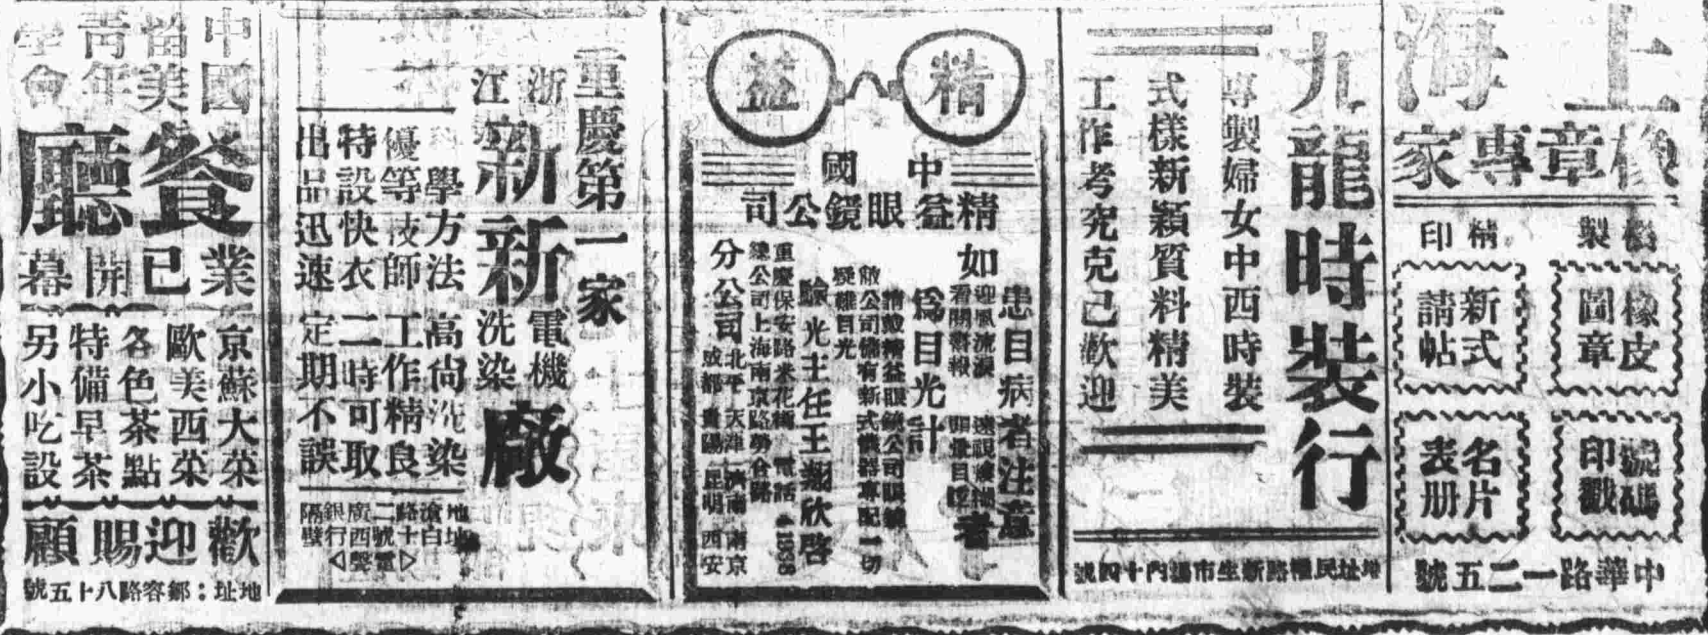 上海
橡章專家
精印
新式請帖
橡皮圖章
名片表册
號碼印戳
中華路一二五號
九龍時裝行
專製婦女中西時裝
式樣新穎質料精美
工作考究克己歡迎
地址民權路新生市場內十四號
精益
中國
精益眼鏡公司
患目病者注意
如
迎風流淚
看閱書報
爲目光計
者
請戴精益眼鏡公司眼鏡
敝公司備有新式儀器專配一切
疑難目光
驗光主任王翔欣啓
重慶保安路米花街 電話 41388
總公司上海南京路勞合路
分公司
北平 天津 濟南 南京
成都 貴陽 昆明 西安
重慶第一家
浙江
新新
電機洗染
廠
科學方法 高尚洗染
優等技師 工作精良
特設快衣 二時可取
出品迅速 定期不誤
地址滄白
路十二號
廣西銀行隔壁
中國
留美
青年
學會
餐廳
業已開幕
京蘇大菜
歐美西菜
各色茶點
特備早茶
另設小吃
歡迎賜顧
地址：鄒容路八十五號